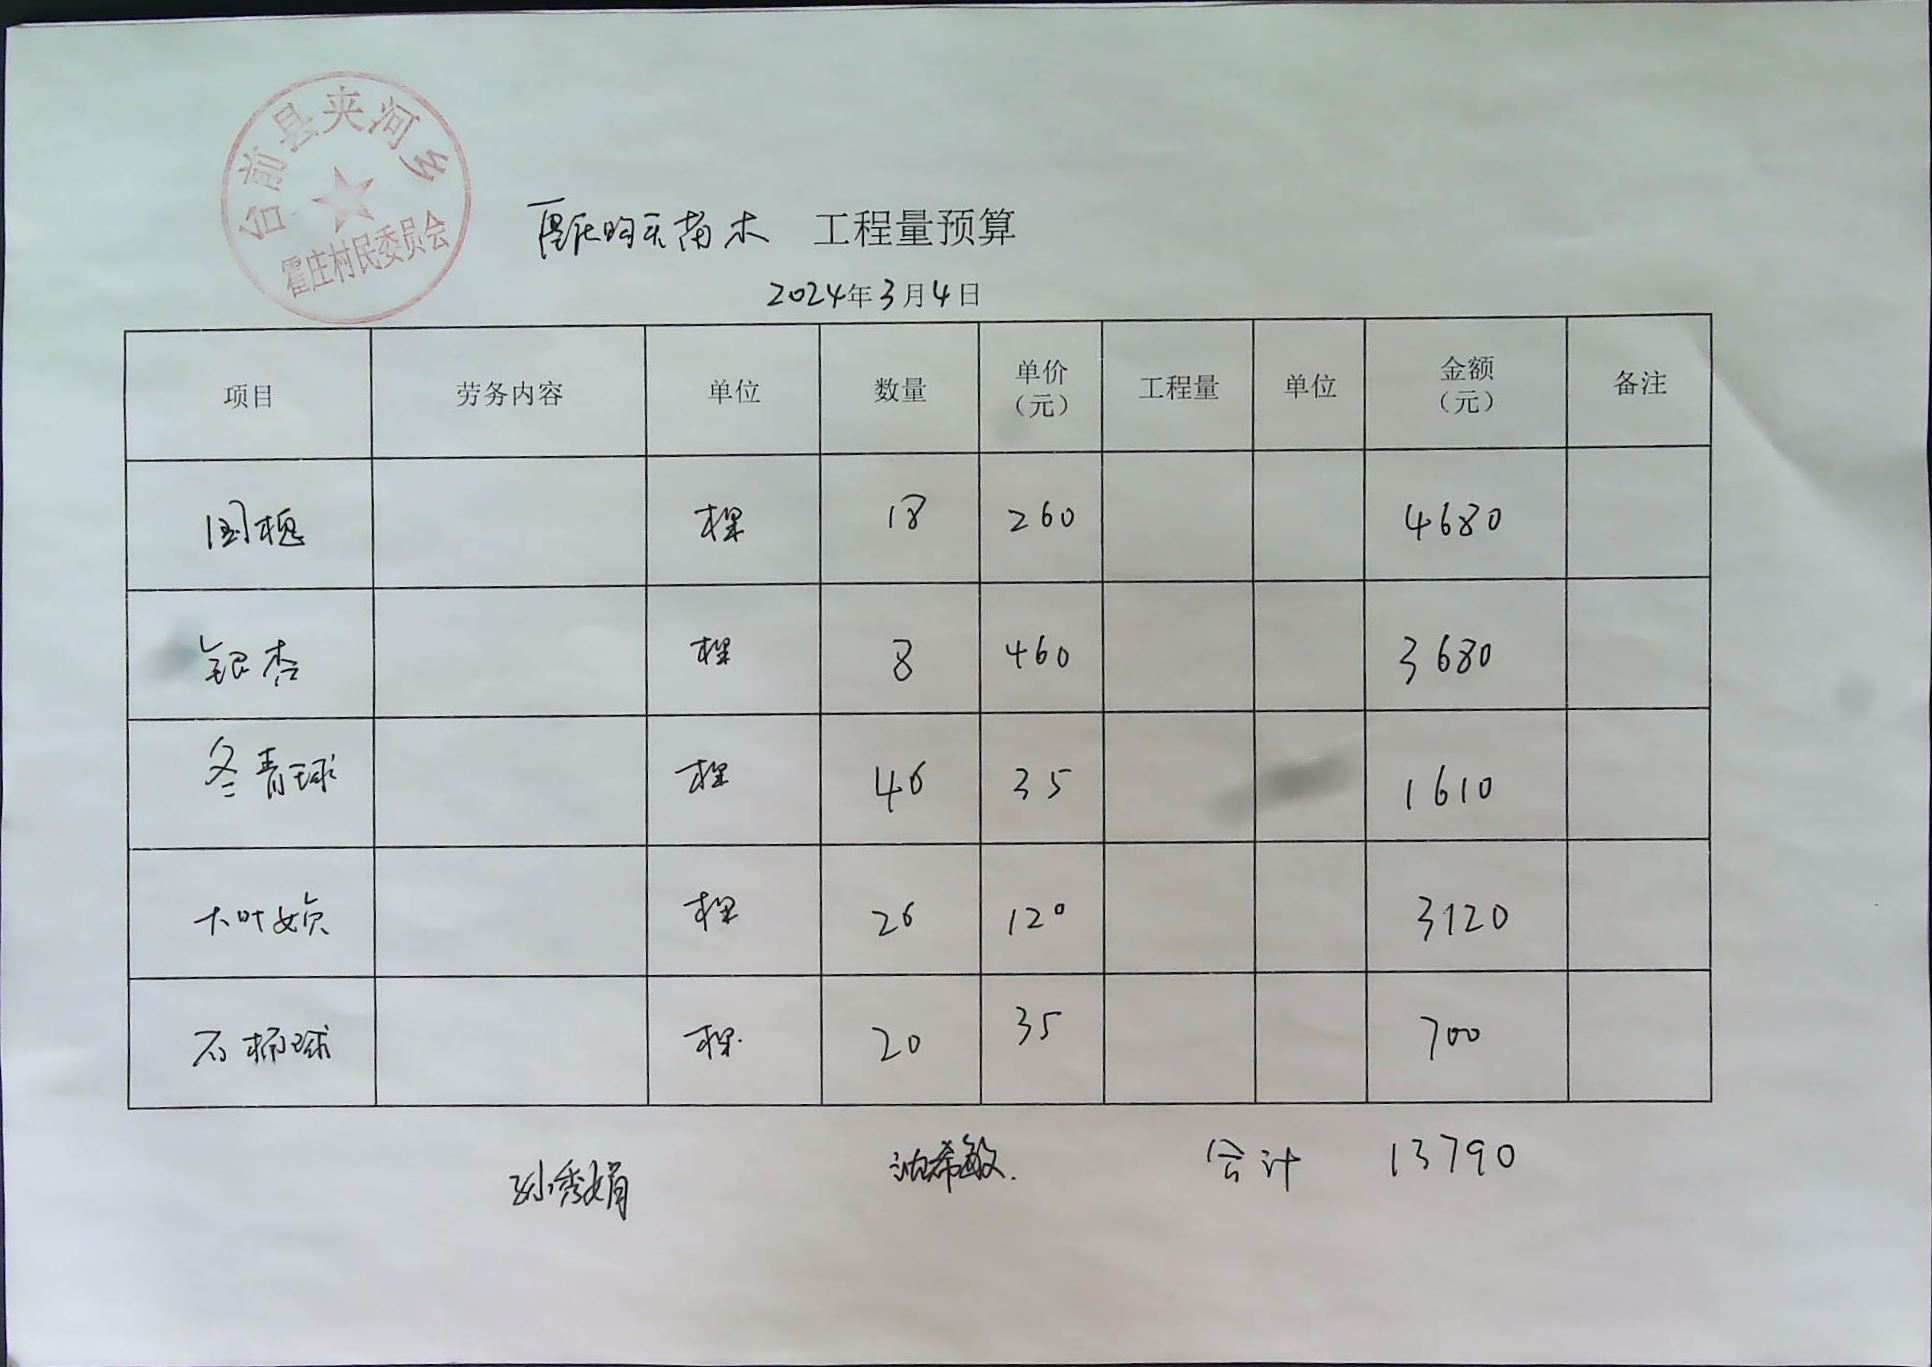 台前县夹河乡
霍庄村民委员会
霍庄购买苗木 工程量预算
2024年3月4日
项目 劳务内容 单位 数量 单价（元） 工程量 单位 金额（元） 备注
国槐 棵 18 260 4680
银杏 棵 8 460 3680
冬青球 棵 46 35 1610
大叶女贞 棵 26 120 3120
石楠球 棵 20 35 700
孙秀娟 沈希敏 合计 13790